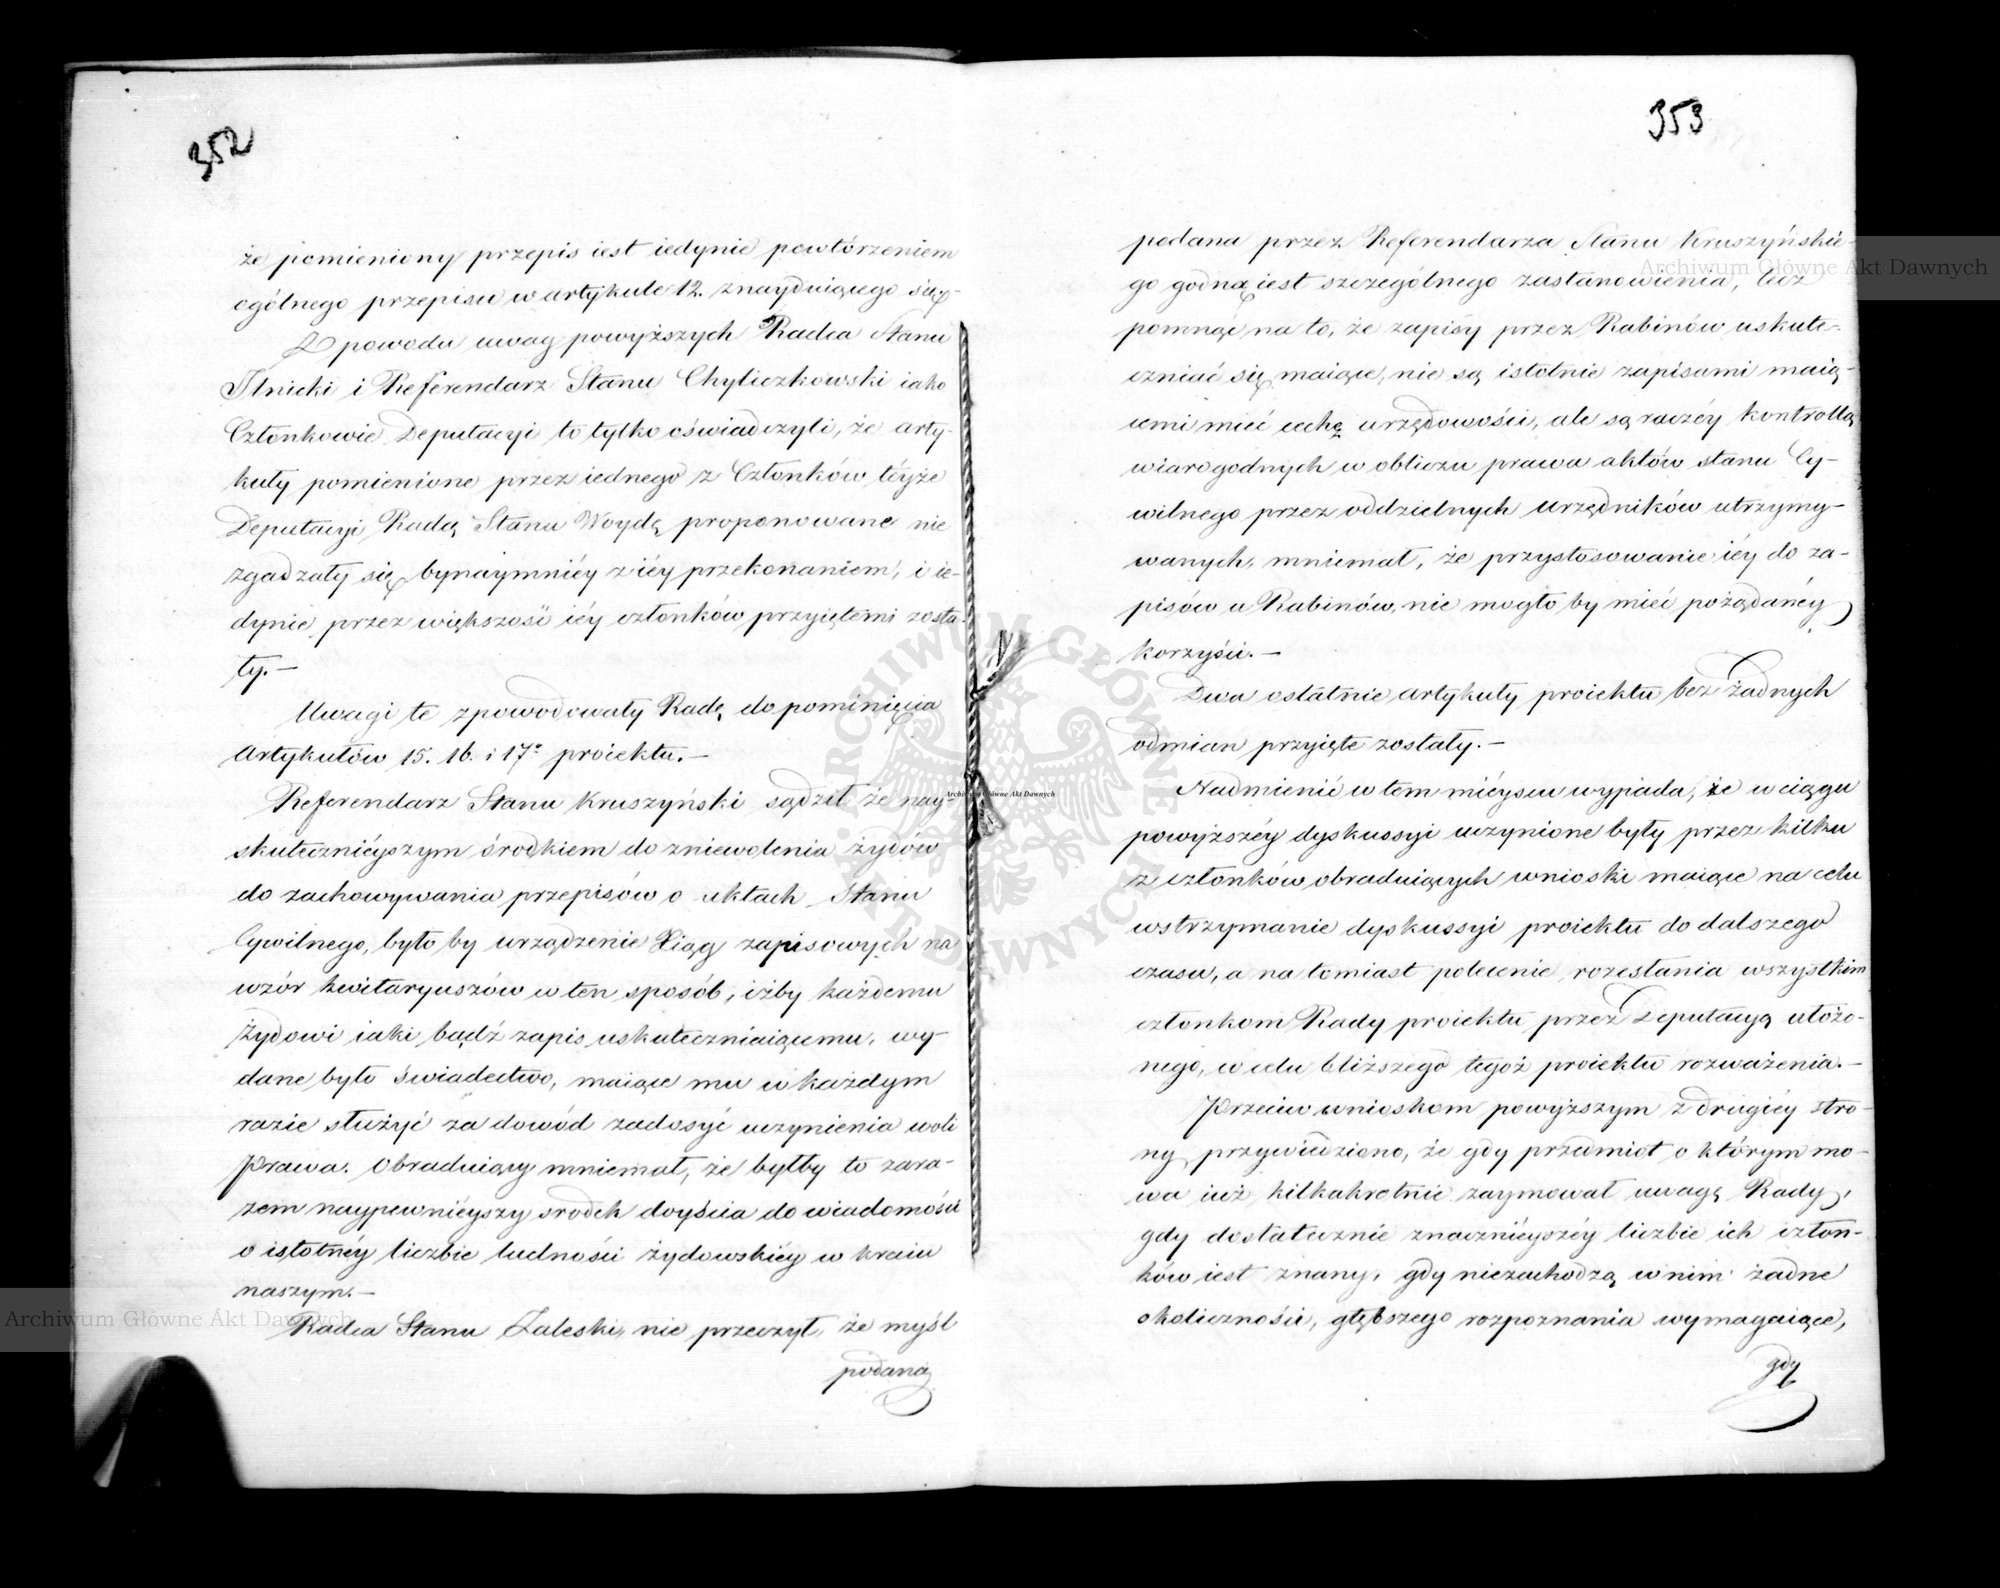 352
że pomieniony przepis iest iedynie powtórzeniem
ogólnego przepisu w artykule 12. znayduiącego się.-
Z powodu uwag powyższych Radca Stanu
Ilnicki i Referendarz Stanu Chyliczkowski iako
Członkowie Deputacyi to tylko oświadczyli, że arty-
kuły pomienione przez iednego z Członków téyże
Deputacyi Radcę Stanu Woydę proponowane nie
zgadzały się bynaymniéy z iéy przekonaniem, i ie-
dynie przez większość iéy członków przyiętemi zosta-
ły.-
Uwagi te spowodowały Radę do pominięcia
Artykułów 15. 16. i 17º proiektu.-
Referendarz Stanu Kruszyński sądził że nay-
skutecznieyszym środkiem do zniewolenia żydów
do zachowywania przepisów o aktach Stanu
Cywilnego, było by urządzenie Xiąg zapisowych na
wzór kwitaryuszów w ten sposób, iżby każdemu
Żydowi iaki bądź zapis uskuteczniaiącemu, wy-
dane było świadectwo, maiące mu w każdym
razie służyć za dowód zadosyć uczynienia woli
Prawa. Obraduiący mniemał, że byłby to zara-
zem naypewniéyszy srodek doyścia do wiadomości
o istotnéy liczbie ludności żydowskiéy w kraiu
naszym.-
Radca Stanu Zaleski, nie przeczył, że myśl
podana
353
podana przez Referendarza Stanu Kruszyńskie-
go godną iest szczególnego zastanowienia, lecz
pomnąc na to, że zapisy przez Rabinów uskute-
czniać się maiące, nie są istotnie zapisami maią-
cemi mieć cechę urzędowości, ale są raczéy kontrollą
wiarogodnych w obliczu prawa aktów stanu Cy-
wilnego przez oddzielnych urzędników utrzymy-
wanych, mniemał, że przystosowanie iéy do za-
pisów u Rabinów, nie mogło by mieć pożądanéy
korzyści.-
Dwa ostatnie artykuły proiektu bez żadnych
odmian przyięte zostały.-
Nadmienić w tem mieyscu wypada, że w ciągu
powyższéy dyskussyi uczynione były przez kilku
z członków obraduiących wnioski maiące na celu
wstrzymanie dyskussyi proiektu do dalszego
czasu, a na tomiast polecenie rozesłania wszystkim
członkom Rady proiektu przez Deputacyą ułożo-
nego, w celu bliższego tegoż proiektu rozważenia.-
Przeciw wnioskom powyższym z drugiéy stro-
ny przywiedziono, że gdy przedmiot o którym mo-
wa iuż kilkakrotnie zaymował uwagę Rady,
gdy dostatecznie znacznieyszéy liczbie ich człon-
ków iest znany, gdy niezachodzą w nim żadne
okoliczności, głębszego rozpoznania wymagaiące,
gdy
Archiwum Główne Akt Dawnych
Archiwum Główne Akt Dawnych
Archiwum Główne Akt Dawnych
ARCHIWUM GŁÓWNE AKT DAWNYCH